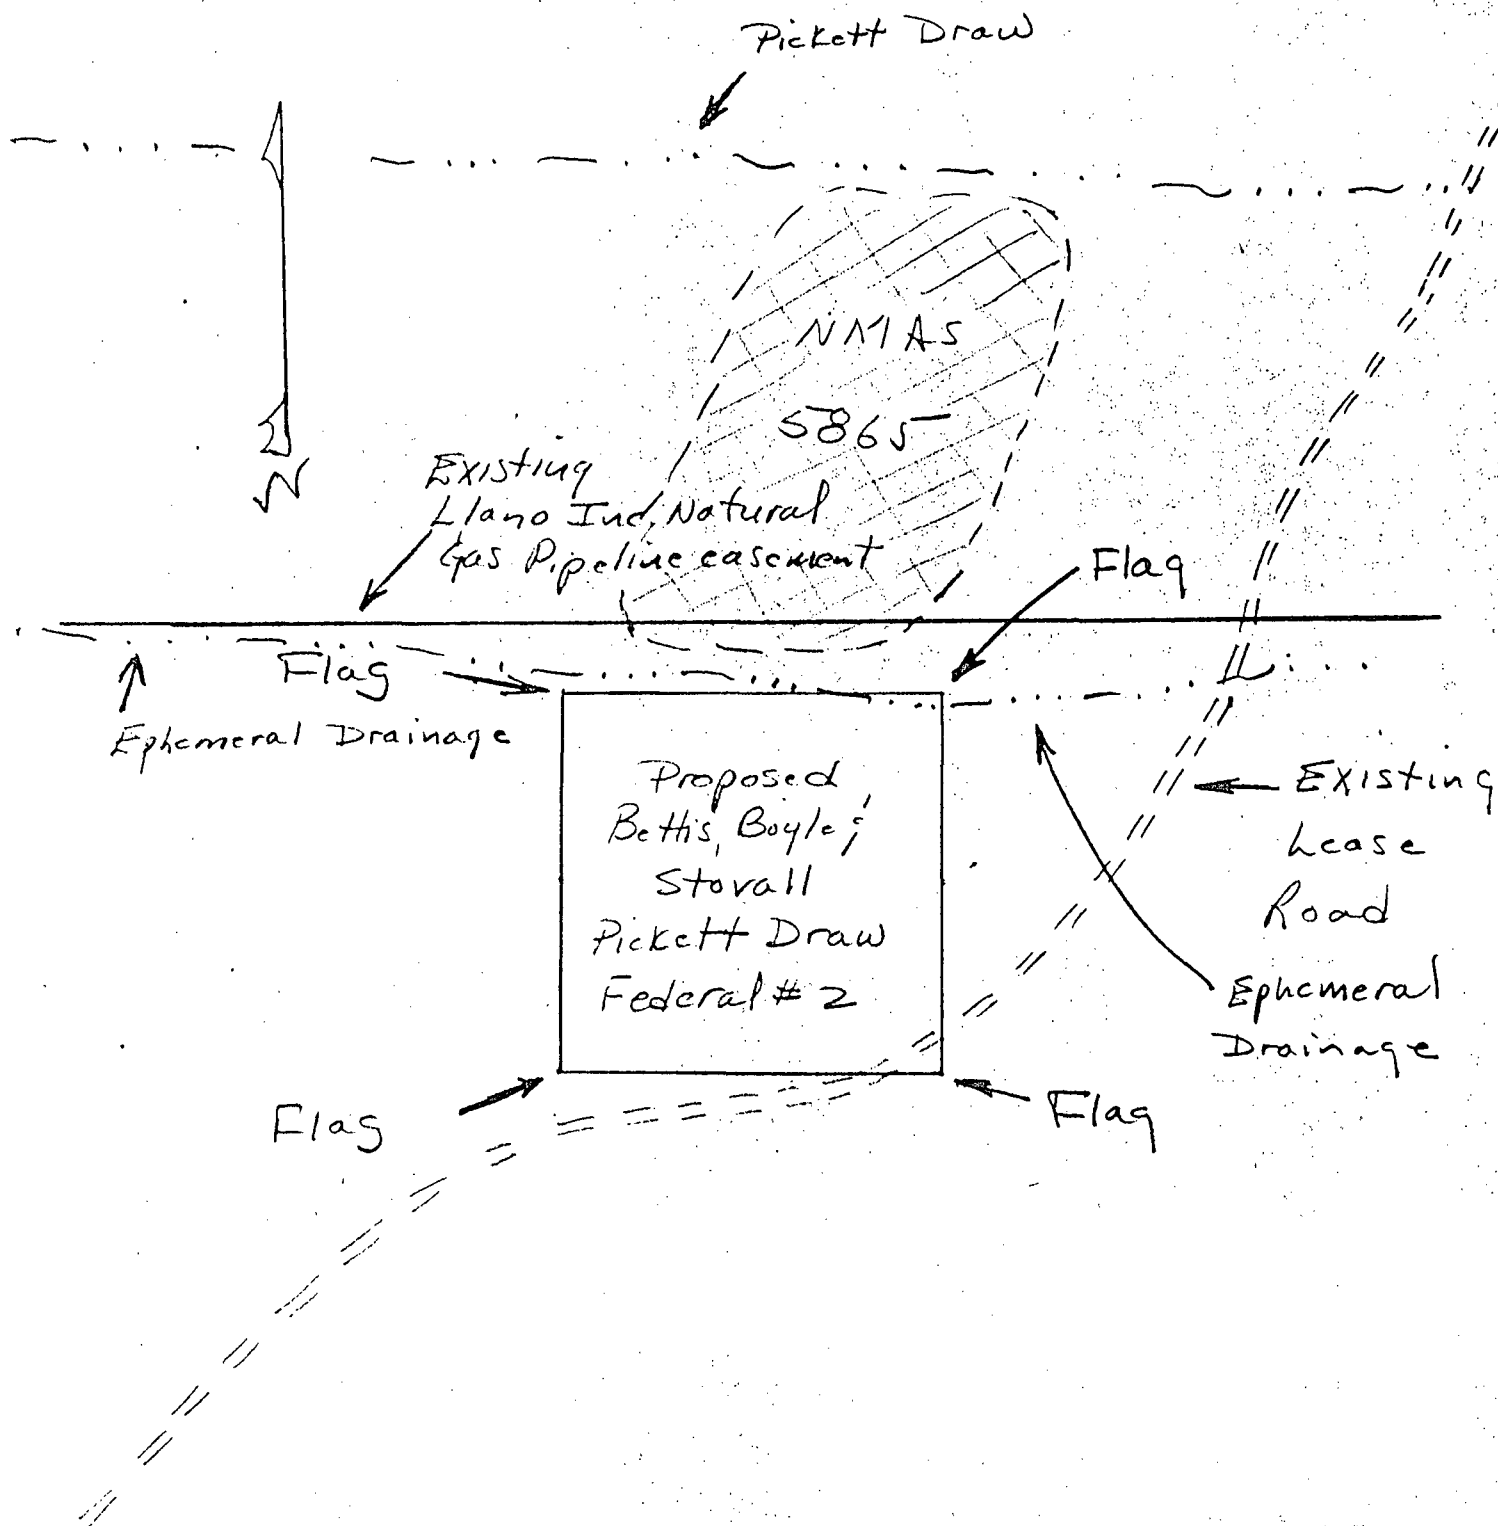 Pickett Draw
NMAS
5865
N
Existing
Llano Ind. Natural
Gas Pipeline easement
Flag
Flag
Ephemeral Drainage
Proposed
Bettis, Boyle &
Stovall
Pickett Draw
Federal # 2
Existing
Lease
Road
Ephemeral
Drainage
Flag
Flag